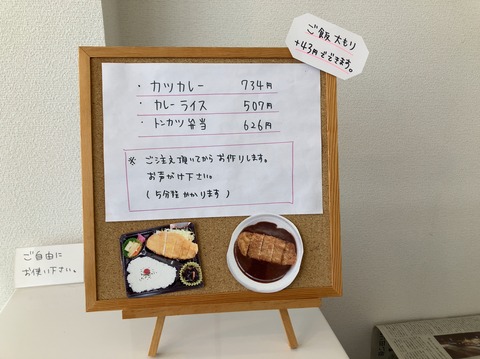 ご飯 大もり
+43円でできます。
・カツカレー 734円
・カレーライス 507円
・トンカツ弁当 626円
※ ご注文頂いてからお作りします。
お声がけ下さい。
(5分程かかります)
ご自由に
お使い下さい。